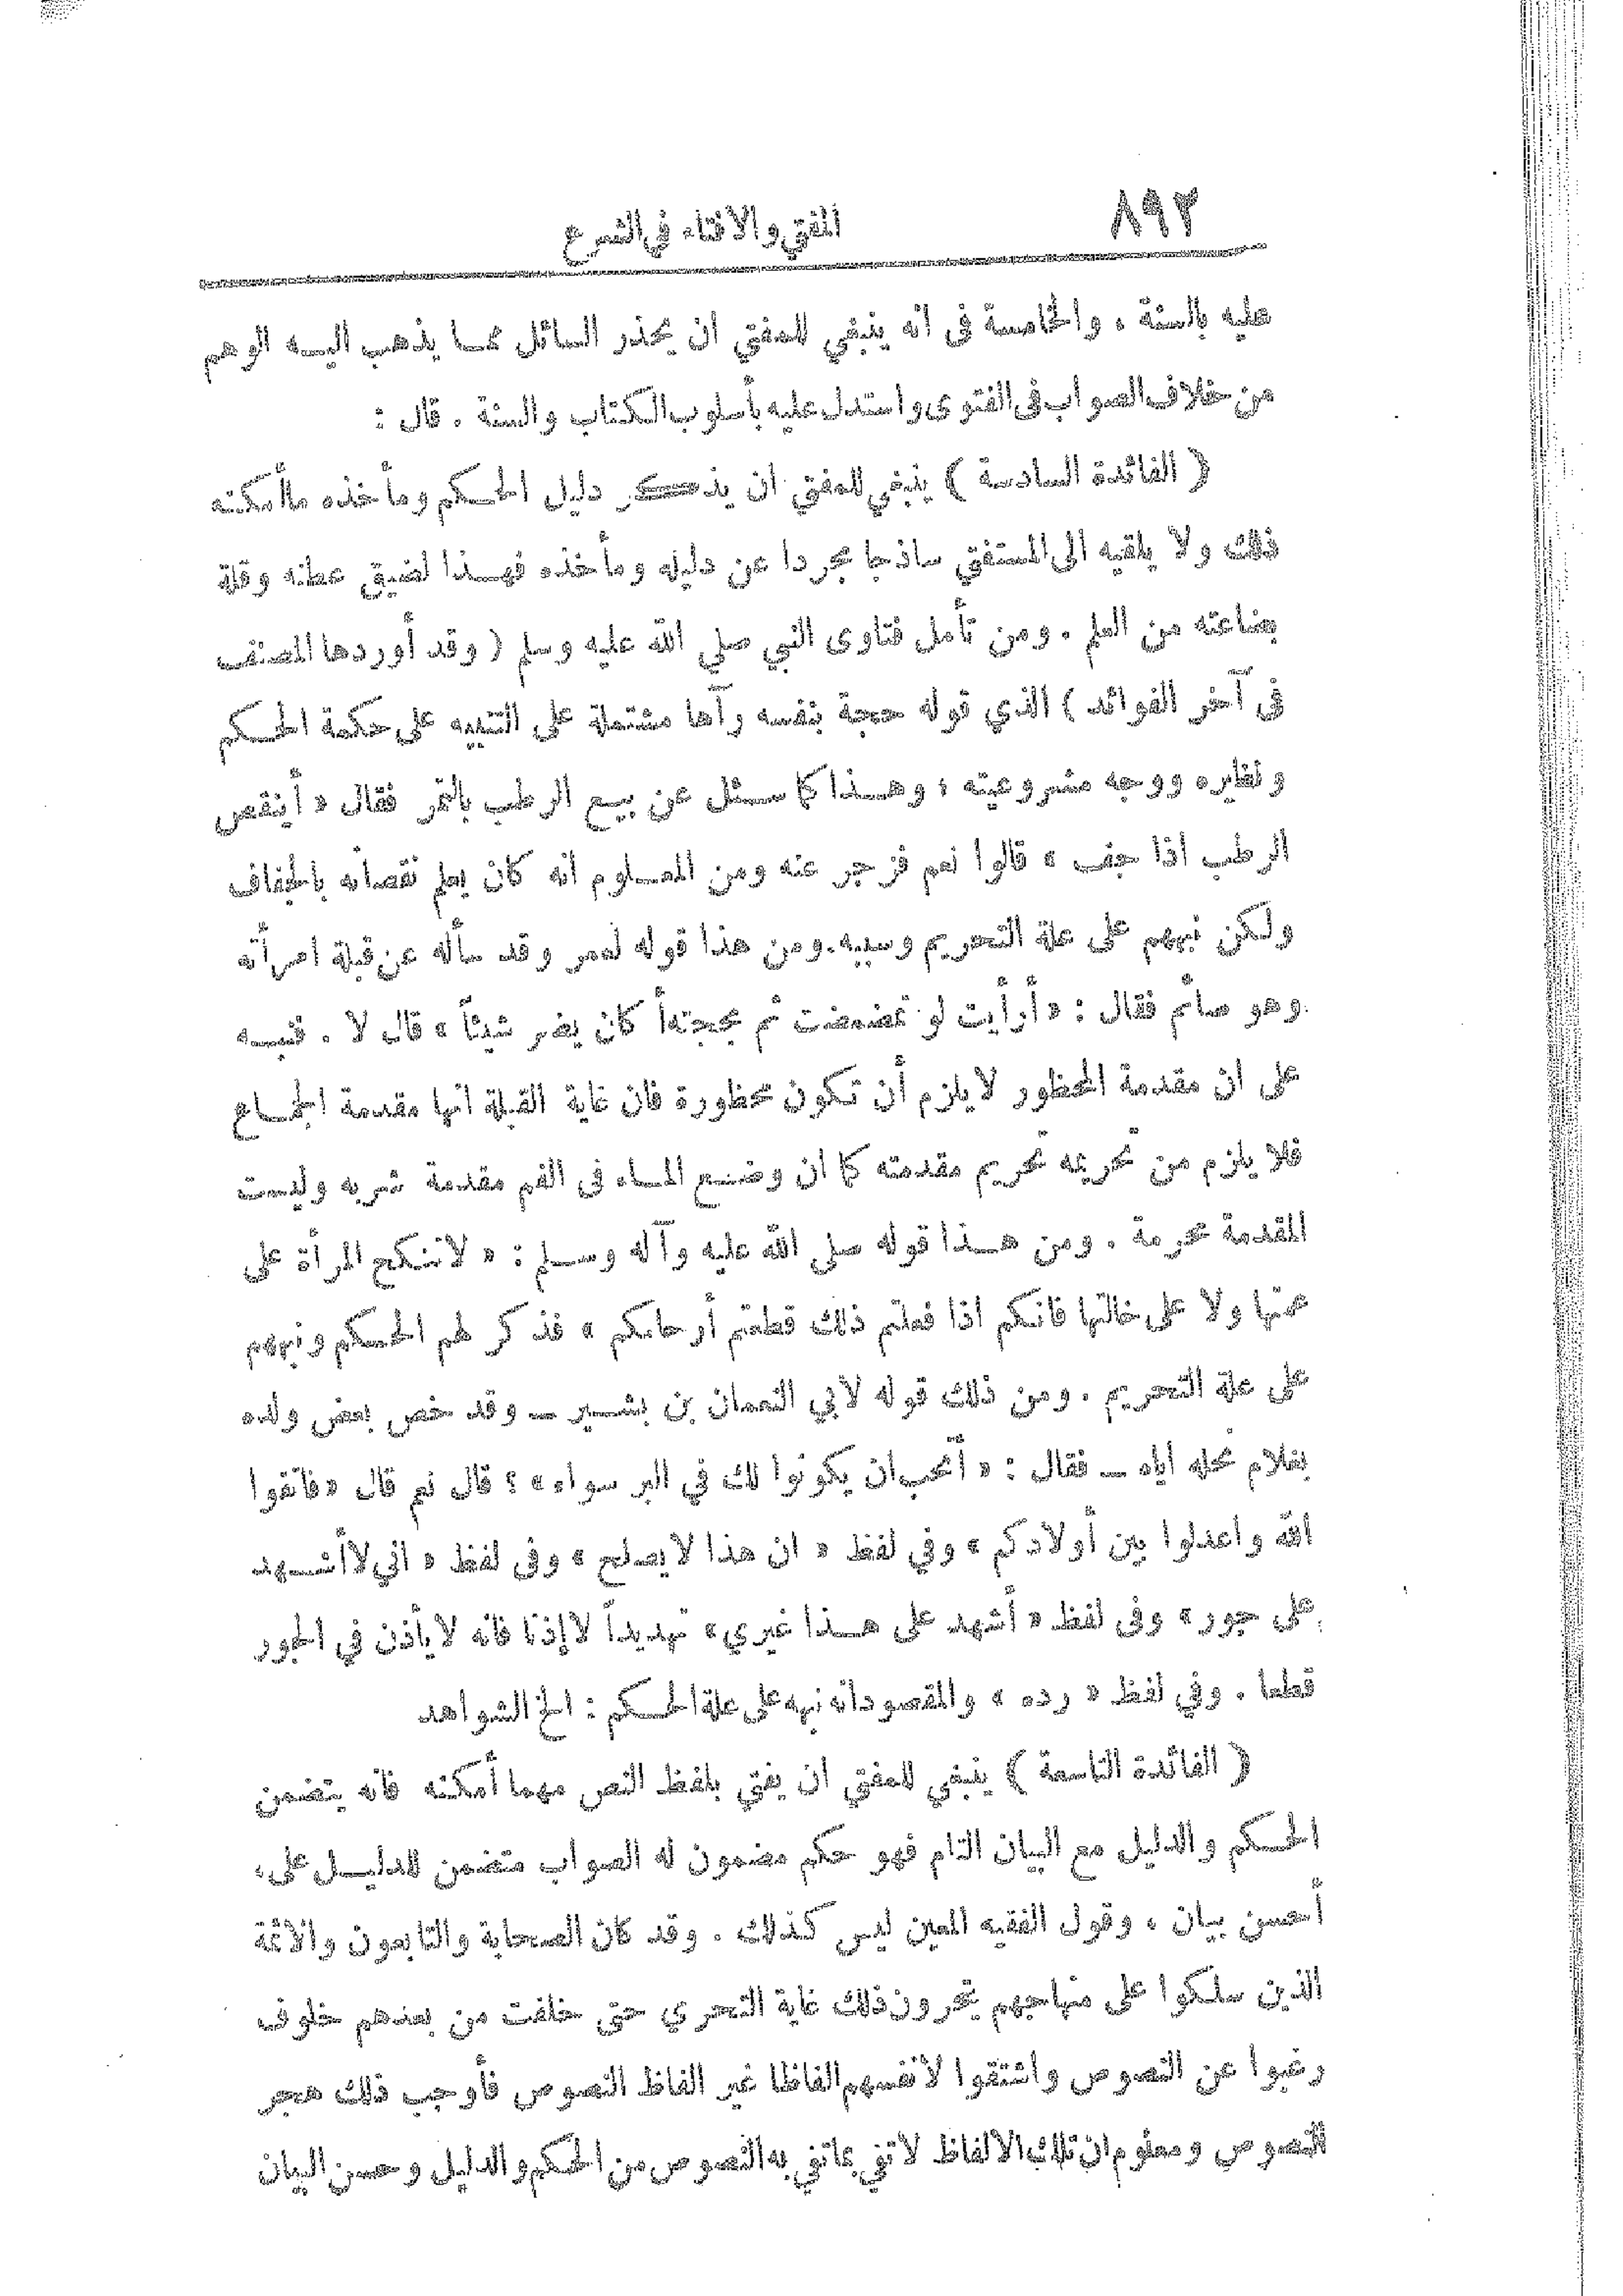 ٨٩٣ المفتي والافتاء في الشرع
عليه بالسنة ، والخامسة فى انه ينبغي للمفتي ان يحذر السائل مما يذهب اليه الوهم
من خلاف الصواب فى الفتوى واستدل عليه بأسلوب الكتاب والسنة . قال :
( الفائدة السادسة ) ينبغي للمفتي ان يذكر دليل الحكم ومأخذه ما أمكنه
ذلك ولا يلقيه الى المستفتي ساذجا مجردا عن دليله ومأخذه فهذا لضيق عطنه وقلة
بضاعته من العلم . ومن تأمل فتاوى النبي صلي الله عليه وسلم ( وقد أوردها المصنف
فى آخر الفوائد ) الذي قوله حجة بنفسه رآها مشتملة على التنبيه على حكمة الحكم
ونظيره ووجه مشروعيته ، وهذا كما سئل عن بيع الرطب بالتمر فقال « أينقص
الرطب اذا جف » قالوا نعم فزجر عنه ومن المعلوم انه كان يعلم نقصانه بالجفاف
ولكن نبههم على علة التحريم وسببه . ومن هذا قوله لعمر وقد سأله عن قبلة امرأته
وهو صائم فقال : « أرأيت لو تمضمضت ثم مججته أكان يضر شيئاً » قال لا . فنبه
على ان مقدمة المحظور لا يلزم أن تكون محظورة فان غاية القبلة انها مقدمة الجماع
فلا يلزم من تحريمه تحريم مقدمته كما ان وضع الماء فى الفم مقدمة شربه وليست
المقدمة محرمة . ومن هذا قوله صلى الله عليه وآله وسلم : « لا تنكح المرأة على
عمتها ولا على خالتها فانكم اذا فعلتم ذلك قطعتم أرحامكم » فذكر لهم الحكم ونبههم
على علة التحريم . ومن ذلك قوله لابي النعمان بن بشير ــ وقد خص بعض ولده
بغلام نحله اياه ــ فقال : « أتحب ان يكونوا لك في البر سواء » ؟ قال نعم قال « فاتقوا
الله واعدلوا بين أولادكم » وفي لفظ « ان هذا لا يصلح » وفى لفظ « اني لا أشهد
على جور » وفى لفظ « أشهد على هذا غيري » تهديداً لا إذنا فانه لا يأذن في الجور
قطعا . وفي لفظ « رده » والمقصود انه نبهه على علة الحكم : الخ الشواهد
( الفائدة التاسعة ) ينبغي للمفتي ان يفتي بلفظ النص مهما أمكنه فانه يتضمن
الحكم والدليل مع البيان التام فهو حكم مضمون له الصواب متضمن للدليل على
أحسن بيان ، وقول الفقيه المعين ليس كذلك . وقد كان الصحابة والتابعون والأئمة
الذين سلكوا على منهاجهم يتحرون ذلك غاية التحري حتى خلفت من بعدهم خلوف
رغبوا عن النصوص واشتقوا لأنفسهم الفاظا غير الفاظ النصوص فأوجب ذلك هجر
النصوص ومعلوم ان تلك الالفاظ لا تفي بما تفي به النصوص من الحكم والدليل وحسن البيان